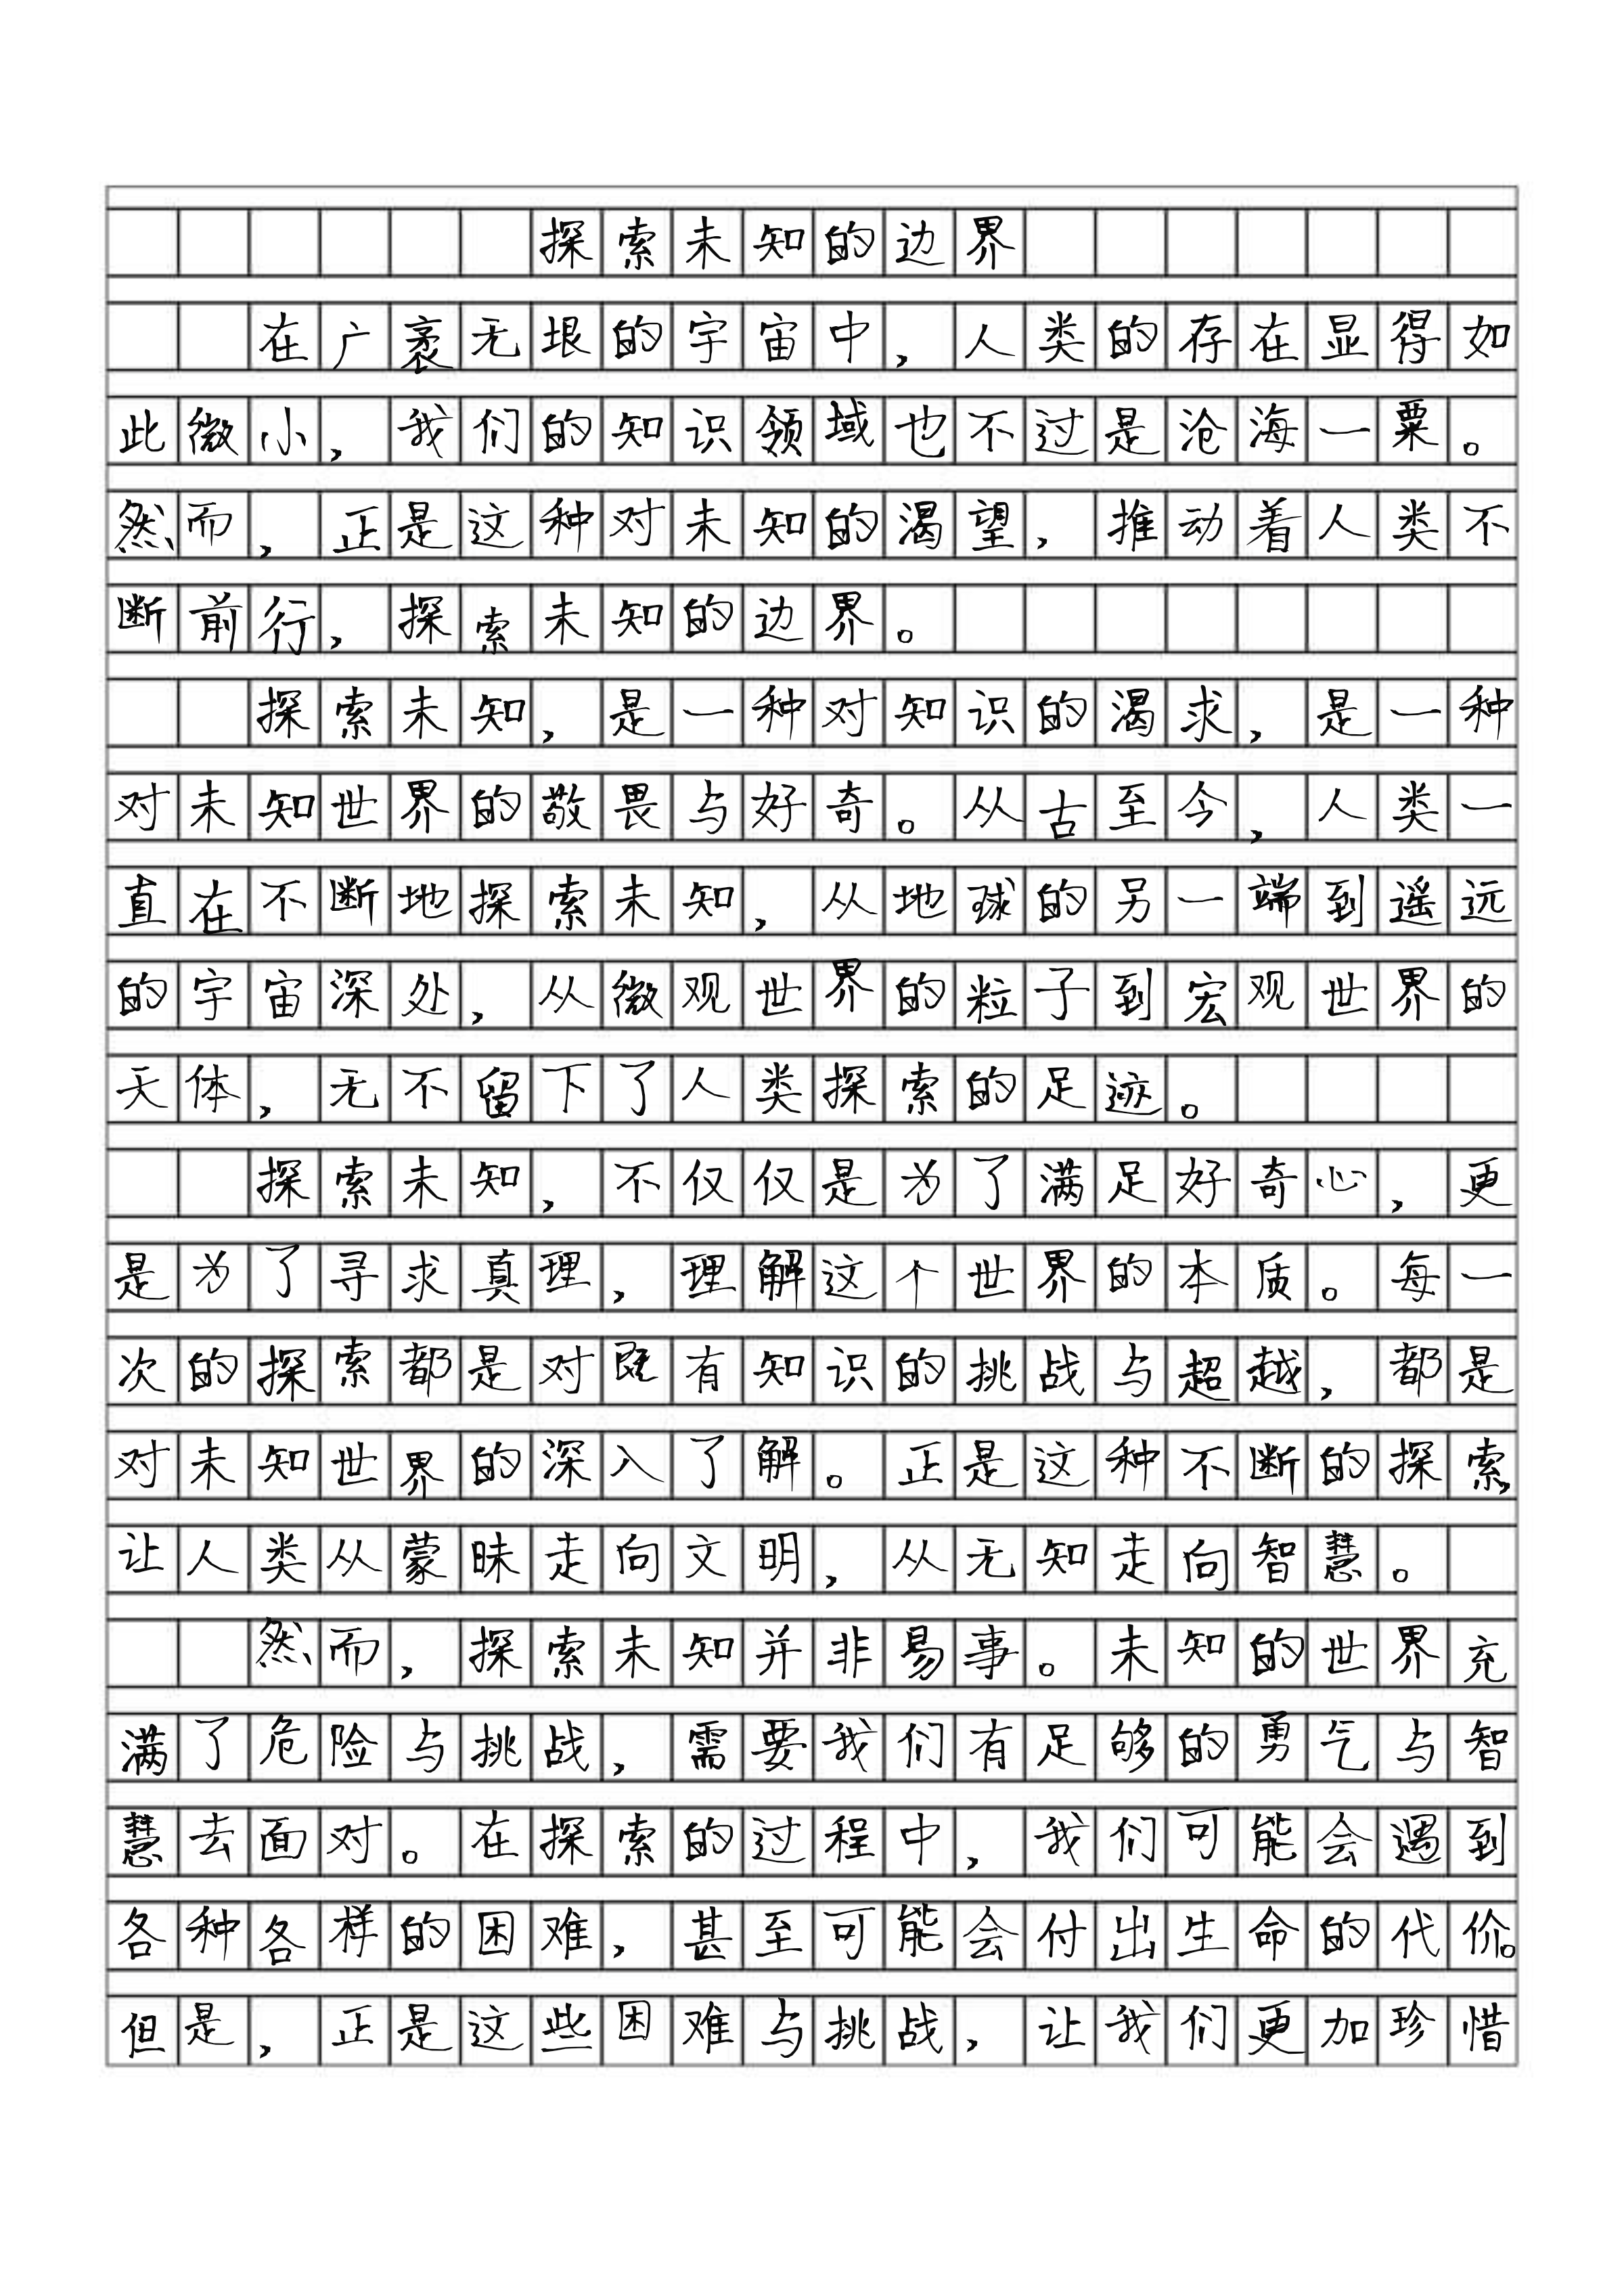 探索未知的边界
在广袤无垠的宇宙中，人类的存在显得如
此微小，我们的知识领域也不过是沧海一粟。
然而，正是这种对未知的渴望，推动着人类不
断前行，探索未知的边界。
探索未知，是一种对知识的渴求，是一种
对未知世界的敬畏与好奇。从古至今，人类一
直在不断地探索未知，从地球的另一端到遥远
的宇宙深处，从微观世界的粒子到宏观世界的
天体，无不留下了人类探索的足迹。
探索未知，不仅仅是为了满足好奇心，更
是为了寻求真理，理解这个世界的本质。每一
次的探索都是对既有知识的挑战与超越，都是
对未知世界的深入了解。正是这种不断的探索，
让人类从蒙昧走向文明，从无知走向智慧。
然而，探索未知并非易事。未知的世界充
满了危险与挑战，需要我们有足够的勇气与智
慧去面对。在探索的过程中，我们可能会遇到
各种各样的困难，甚至可能会付出生命的代价。
但是，正是这些困难与挑战，让我们更加珍惜